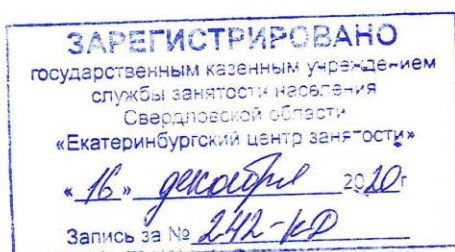 ЗАРЕГИСТРИРОВАНО
государственным казенным учреждением
службы занятости населения
Свердловской области
«Екатеринбургский центр занятости»
« 16 » декабря 2020г
Запись за № 242-КД